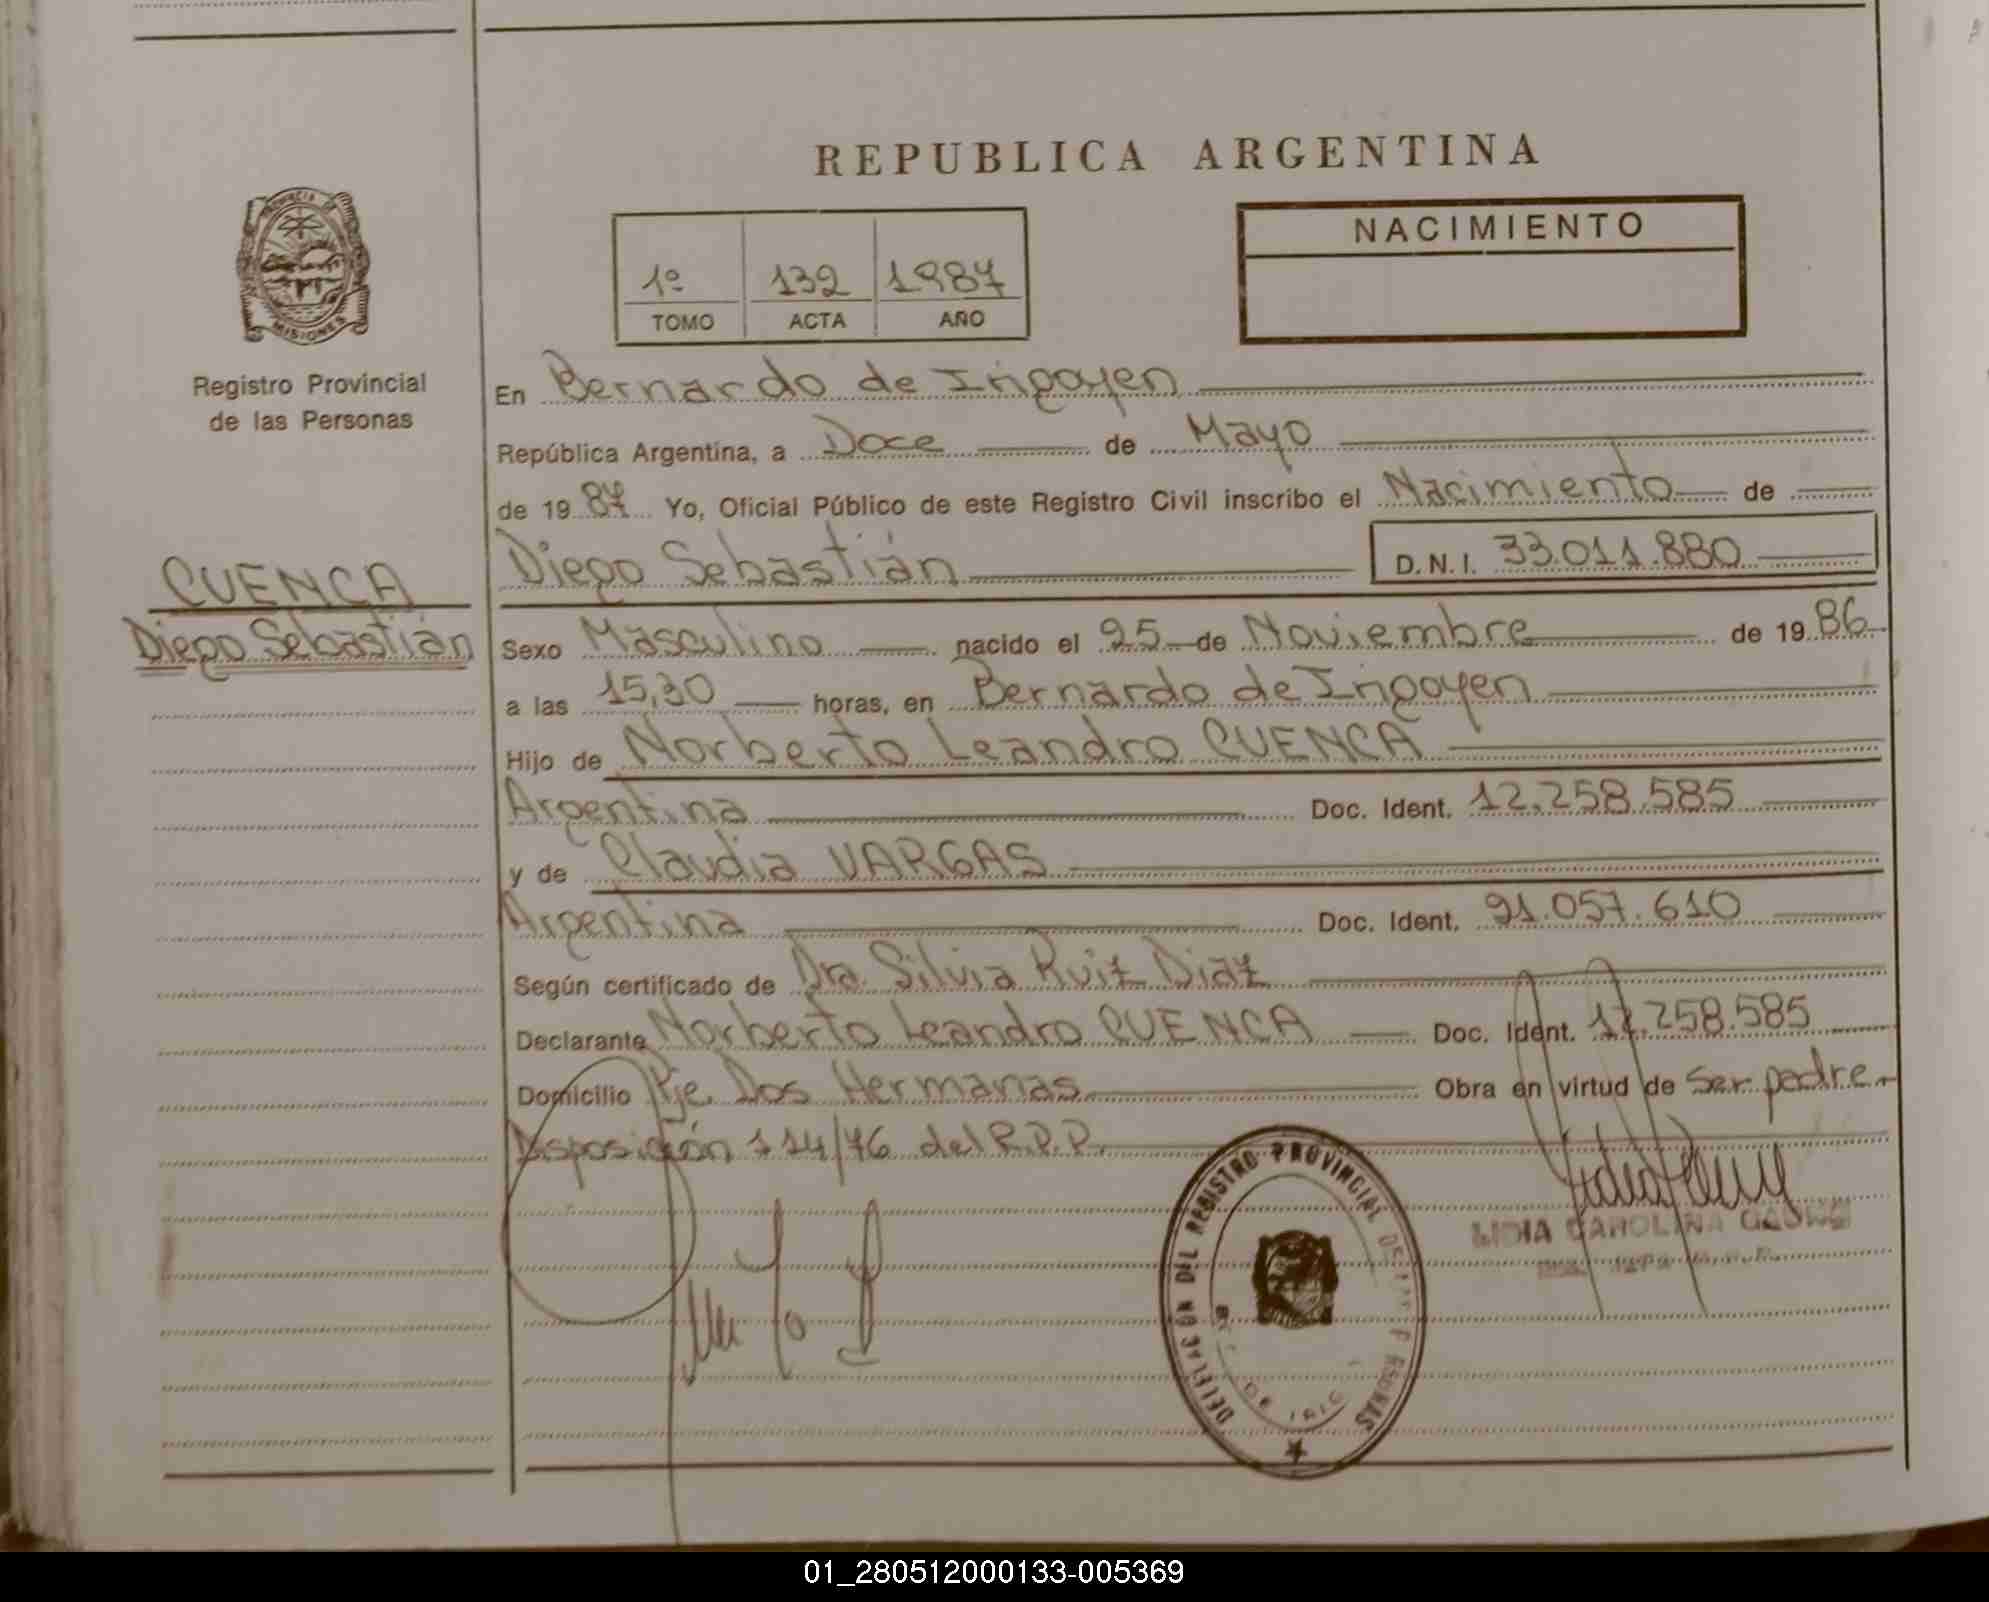 REPUBLICA ARGENTINA
PROVINCIA DE
MISIONES
Registro Provincial
de las Personas
1º 132 1987
TOMO ACTA AÑO
NACIMIENTO
En Bernardo de Irigoyen
República Argentina, a Doce de Mayo
de 19 87 Yo, Oficial Público de este Registro Civil inscribo el Nacimiento de
Diego Sebastián D.N.I. 33.011.880
CUENCA
Diego Sebastián
Sexo Masculino nacido el 25 de Noviembre de 19 86
a las 15,30 horas, en Bernardo de Irigoyen
Hijo de Norberto Leandro CUENCA
Argentina Doc. Ident. 12.258.585
y de Claudia VARGAS
Argentina Doc. Ident. 91.057.610
Según certificado de Dra. Silvia Ruiz Diaz
Declarante Norberto Leandro CUENCA Doc. Ident. 12.258.585
Domicilio Pje. Dos Hermanas Obra en virtud de Ser padre
Disposición 114/76 del R.P.P.
DELEGACION DEL REGISTRO PROVINCIAL DE LAS PERSONAS
LIDIA CAROLINA
01_280512000133-005369